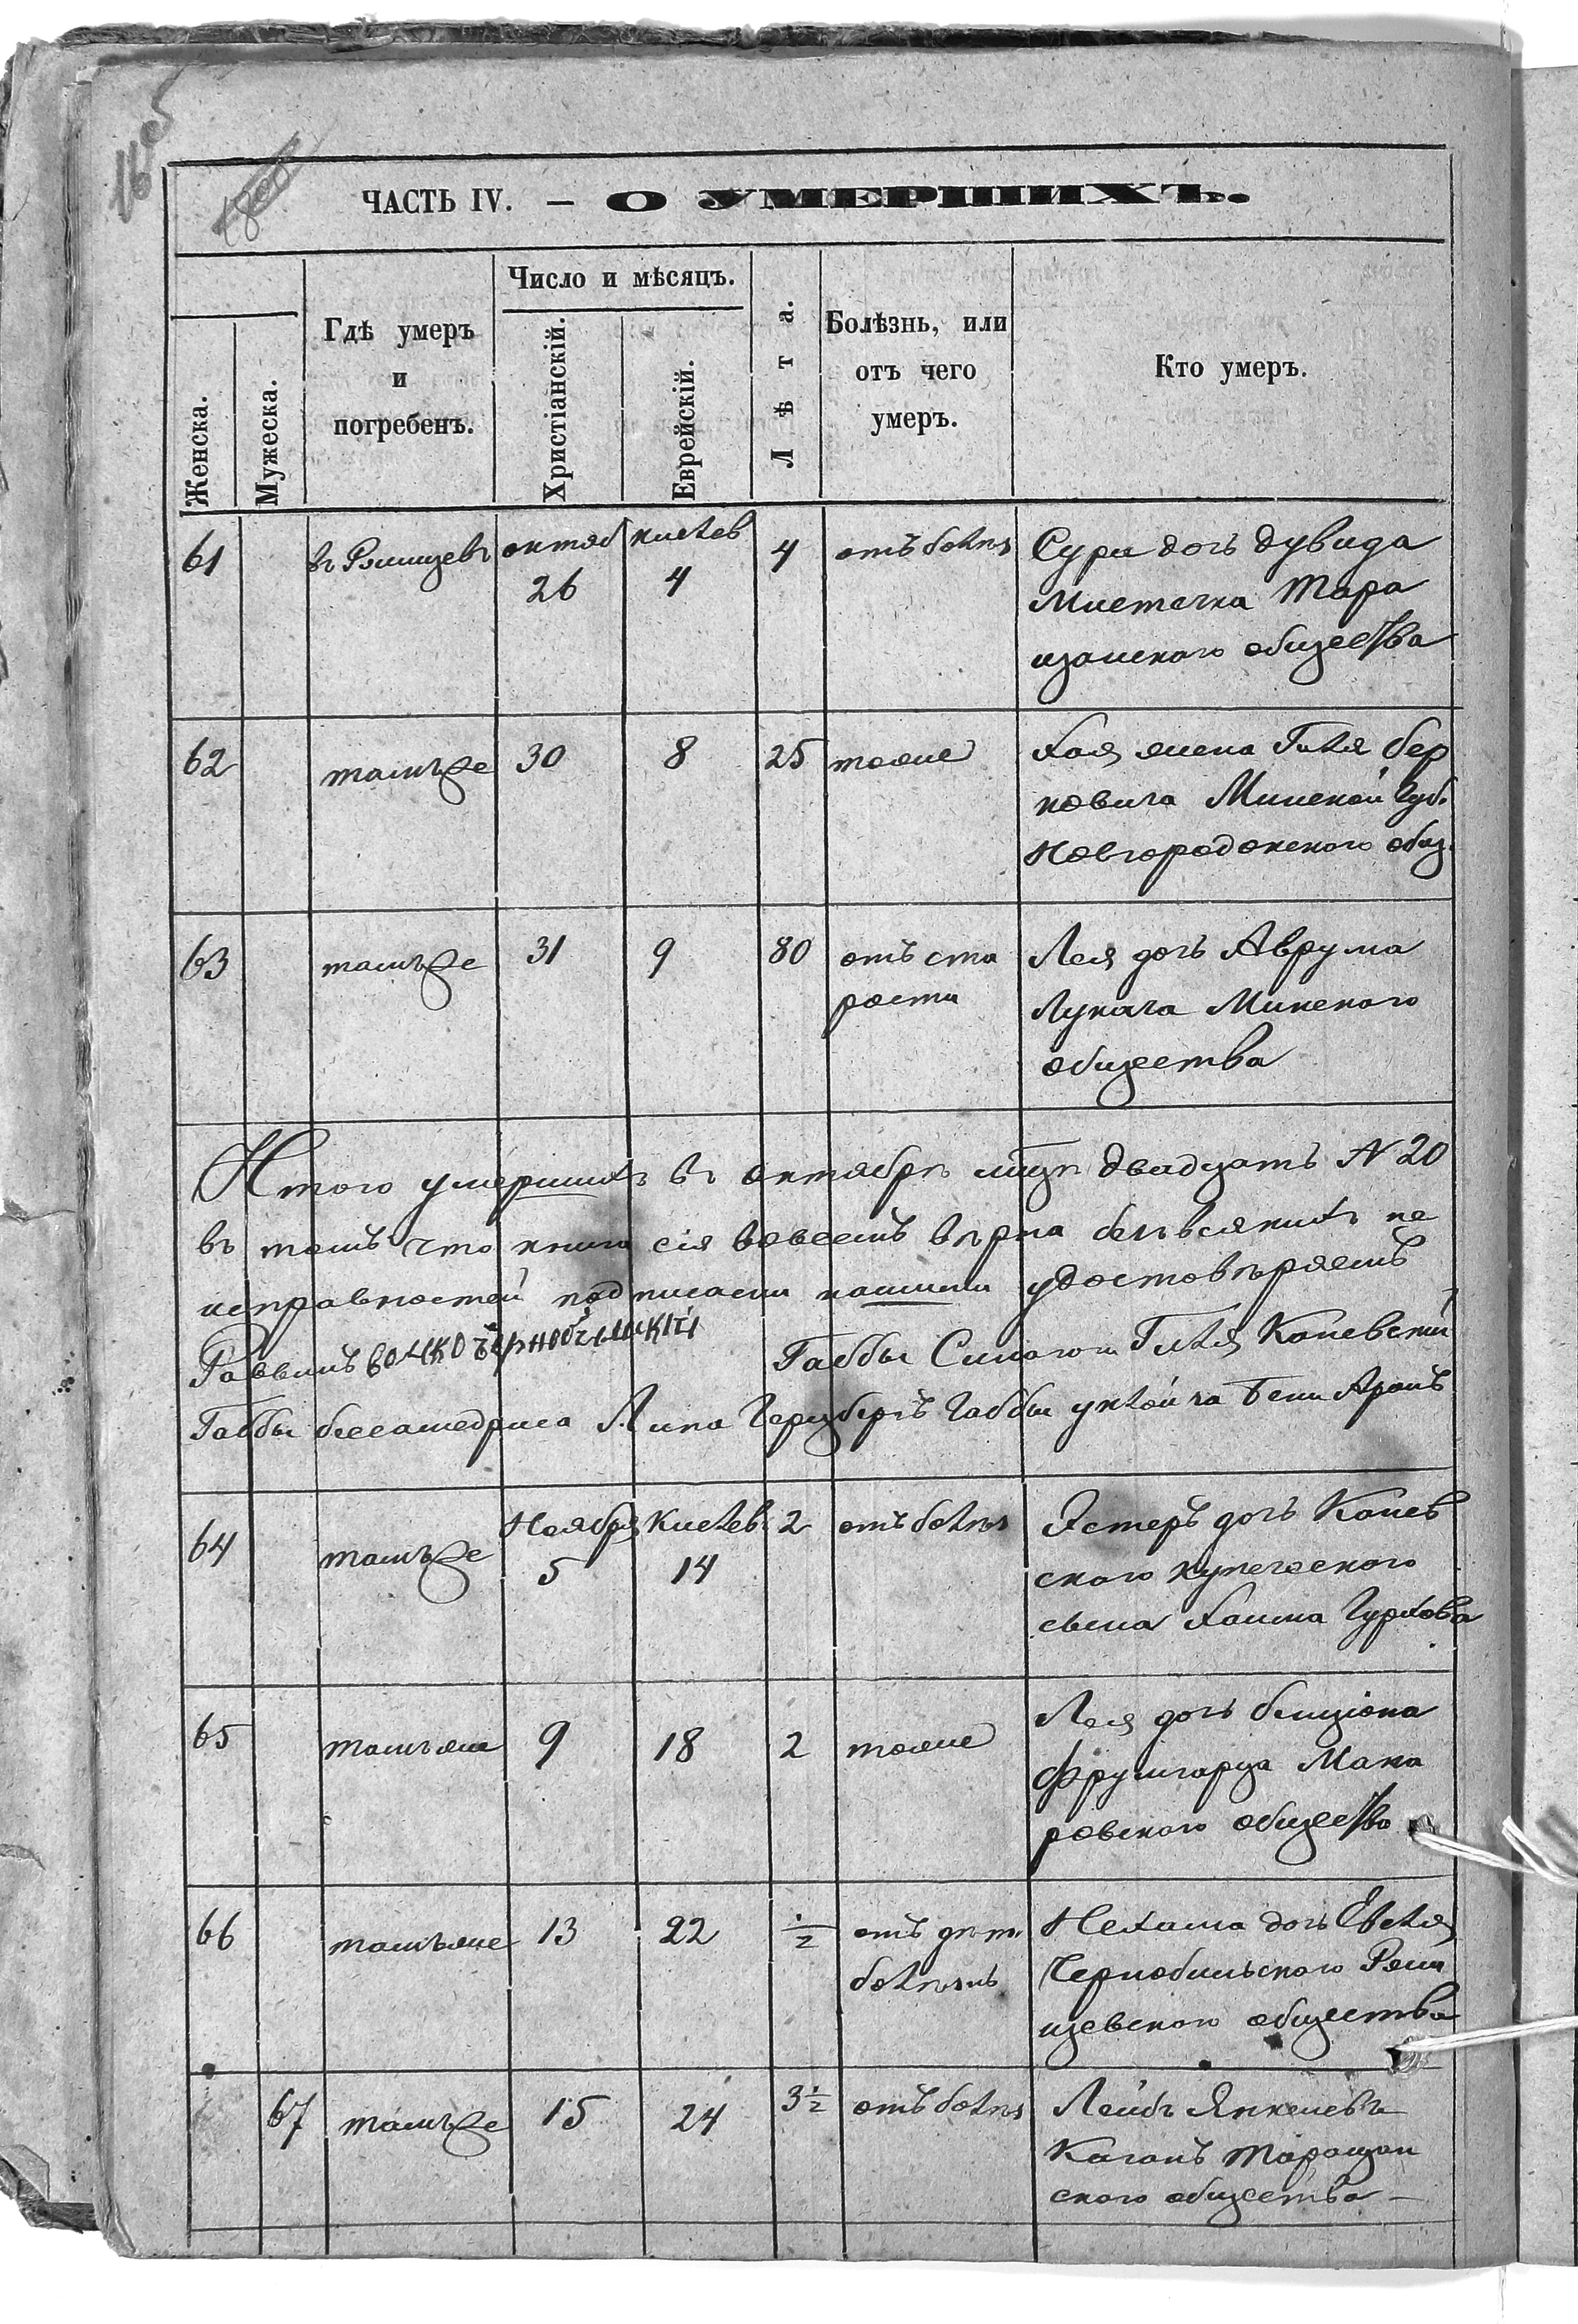 ЧАСТЬ IV. — О УМЕРШИХЪ.
Женска.
Мужеска.
Гдѣ умеръ
и
погребенъ.
Число и мѣсяцъ.
Христіанскій.
Еврейскій.
Лѣта.
Болѣзнь, или
отъ чего
умеръ.
Кто умеръ.
61 въ Ржищевѣ октяб 26 кислев 4 4 отъ болѣз
Сура дочь Дувида
Мистечка Тара
щанского общества
62 тамъже 30 8 25 тоже
Хая жена Гиля Бер
ковича Минской Губ.
Новгородокского общ.
63 тамъже 31 9 80 отъ ста
рости
Лея дочь Аврума
Лукача Минского
общества
Итого умершихъ въ октябрѣ мцѣ двадцать N 20
въ томъ что книга сія вовсемъ вѣрна безъ всякихъ не
исправностей подписами нашими удостовѣряемъ
Раввинъ Волко Чернобыльскій Габбы Синагоги Гиля Каневскій
Габбы бесамедриса Липа Герцберъ Габбы уклойча Бени Аронъ
64 тамъже Ноября 5 Кислев 14 2 отъ болѣз
Эстеръ дочь Канев
ского купеческого
сына Хаима Гурхова
65 тамъже 9 18 2 тоже
Лея дочь Бенціона
Фрумгарца Мака
ровского общество
66 тамъже 13 22 1/2 отъ дѣт.
болѣзнь
Нехама дочь Евеля
Чернобильского Ржи
щевского общества
67 тамъже 15 24 3 1/2 отъ болѣз
Лейбъ Янкелевъ
Каганъ Таращан
ского общества —